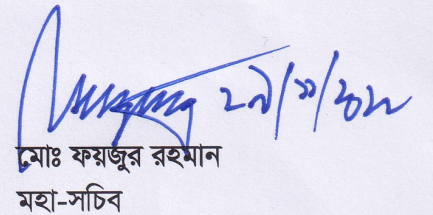 ২৯/১১/২০২২
মোঃ ফয়জুর রহমান
মহা-সচিব